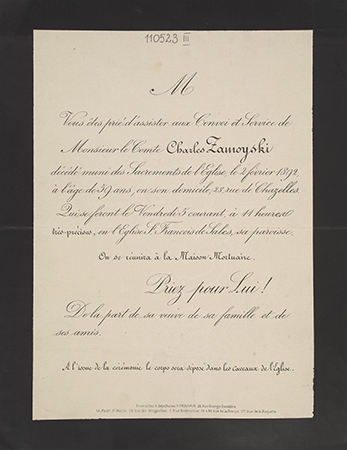 110523 III
M
Vous êtes prié d'assister aux Convoi et Service de
Monsieur le Comte Charles Zamoyski
décédé muni des Sacrements de l'Eglise, le 2 février 1892,
à l'âge de 59 ans, en son domicile, 28 rue de Chazelles.
Qui se feront le Vendredi 5 courant, à 11 heures
très-précises, en l'Eglise St François de Sales, sa paroisse.
On se réunira à la Maison Mortuaire.
Priez pour Lui!
De la part de sa veuve de sa famille et de
ses amis.
A l'issue de la cérémonie le corps sera déposé dans les caveaux de l'Eglise.